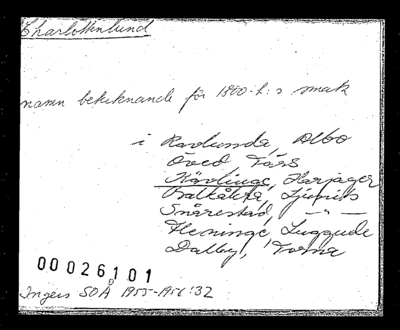 Charlottenlund
namn betecknande för 1800-t:s smak
i Ravlunda, Albo
Öved, Färs
Kävlinge, Harjager
Balkåkra, Ljunits
Snårestad, - " -
Fleninge, Luggude
Dalby, Torna
00026101
Ingers SOÅ 1955-1956:32